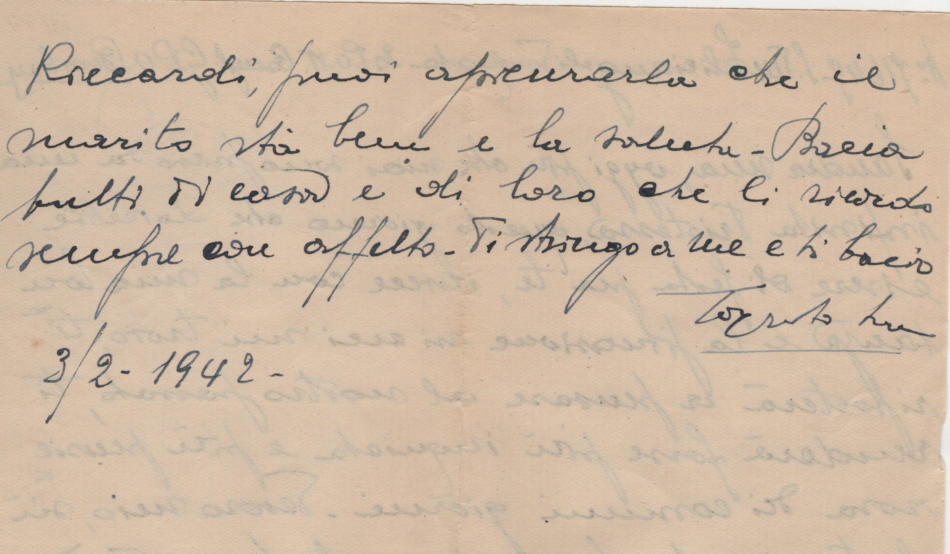 Riccardi, puoi assicurarla che il
marito sta bene e la saluta - Bacia
tutti di casa e di loro che li ricordo
sempre con affetto - Ti stringo a me e ti bacio
tuo
3/2 - 1942 -